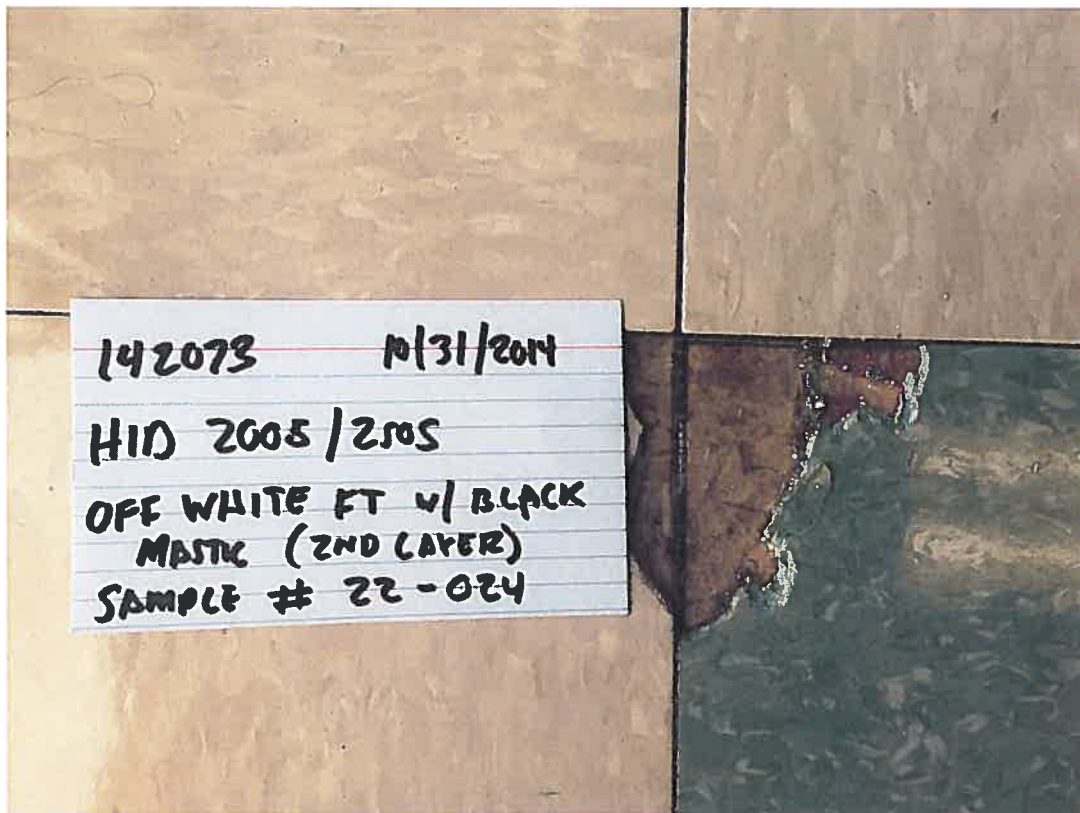 142073 10/31/2014
HID 2005/2505
OFF WHITE FT W/ BLACK
MASTIC (2ND LAYER)
SAMPLE # 22-024